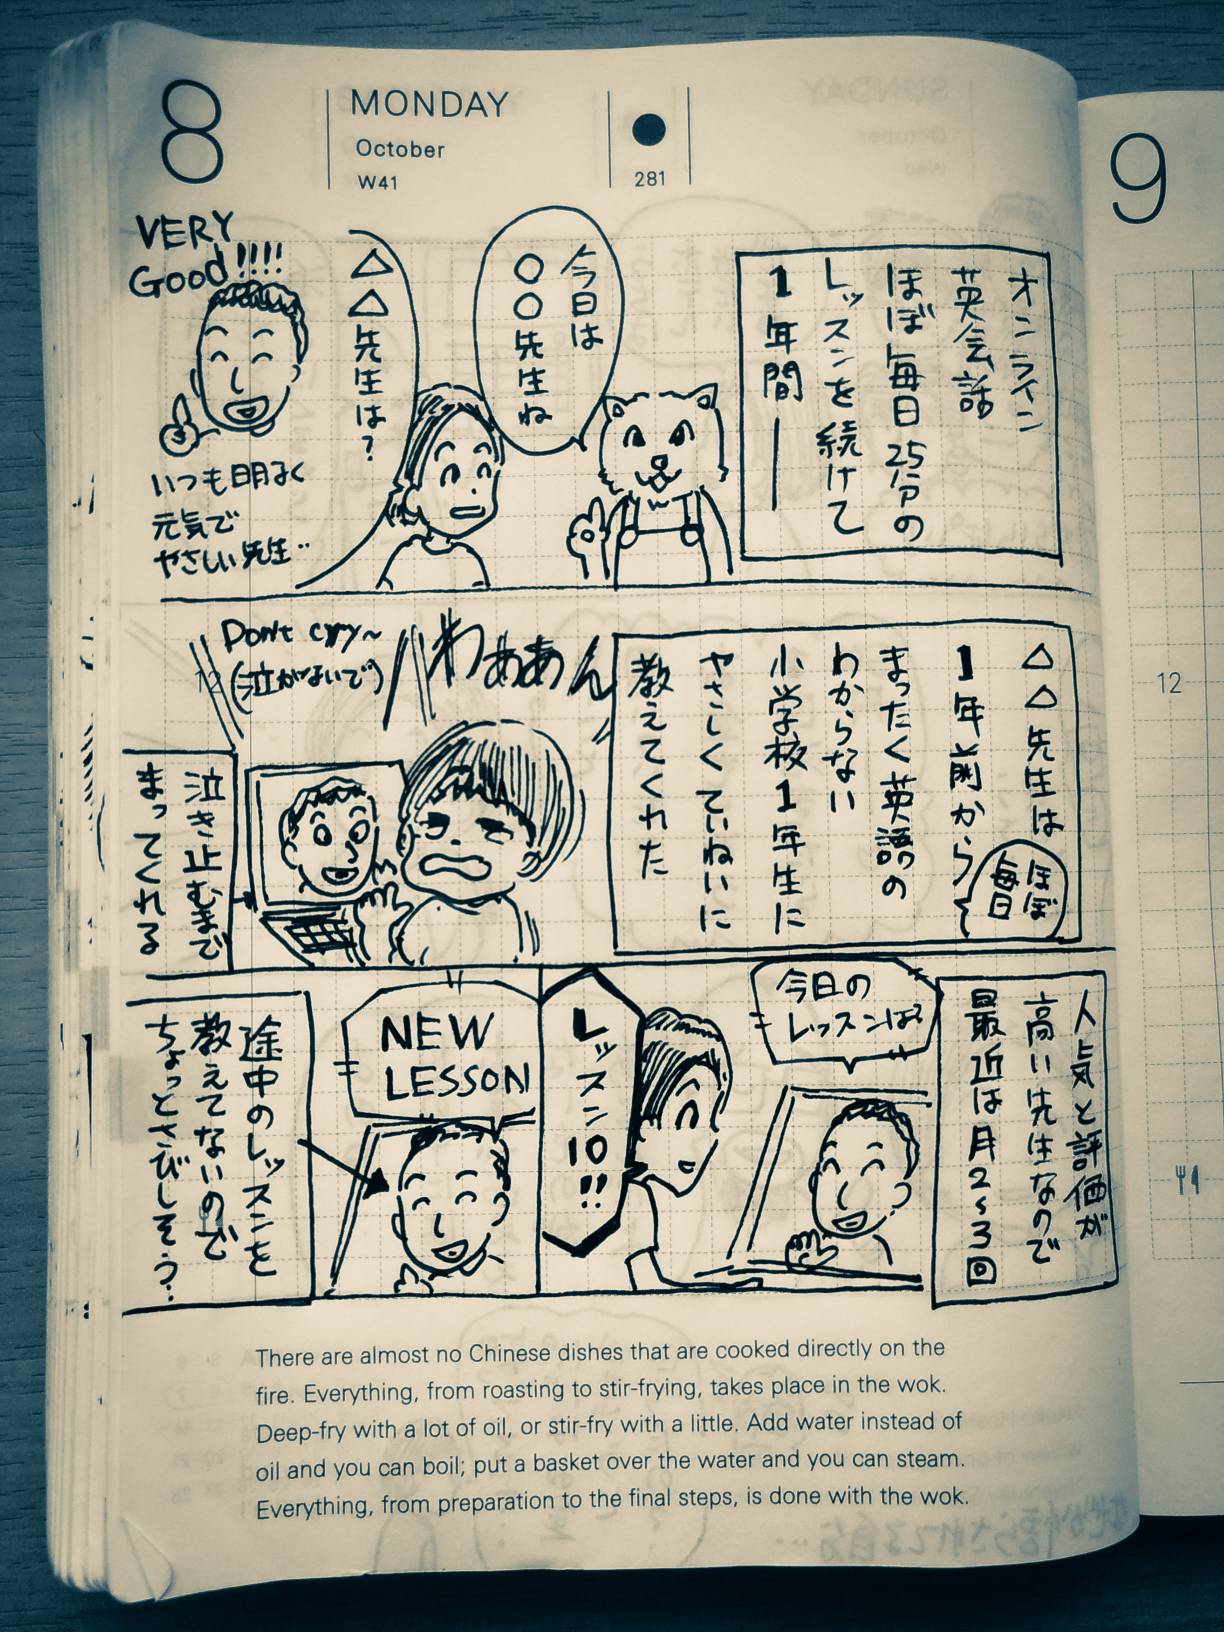 8
MONDAY
October
W41
281
9
12
オンライン
英会話
ほぼ毎日25分の
レッスンを続けて
1年間――
今日は
○○先生ね
△△先生は?
VERY
Good!!!!
いつも明るく
元気で
やさしい先生‥
△△先生は
1年前から
ほぼ
毎日
まったく英語の
わからない
小学校1年生に
やさしくていねいに
教えてくれた
わああん
Don't cry~
(泣かないで)
泣き止むまで
まってくれる
人気と評価が
高い先生なので
最近は月2~3回
今日の
レッスンは?
レッスン10!!
NEW
LESSON
途中のレッスンを
教えてないので
ちょっとさびしそう?
There are almost no Chinese dishes that are cooked directly on the
fire. Everything, from roasting to stir-frying, takes place in the wok.
Deep-fry with a lot of oil, or stir-fry with a little. Add water instead of
oil and you can boil; put a basket over the water and you can steam.
Everything, from preparation to the final steps, is done with the wok.